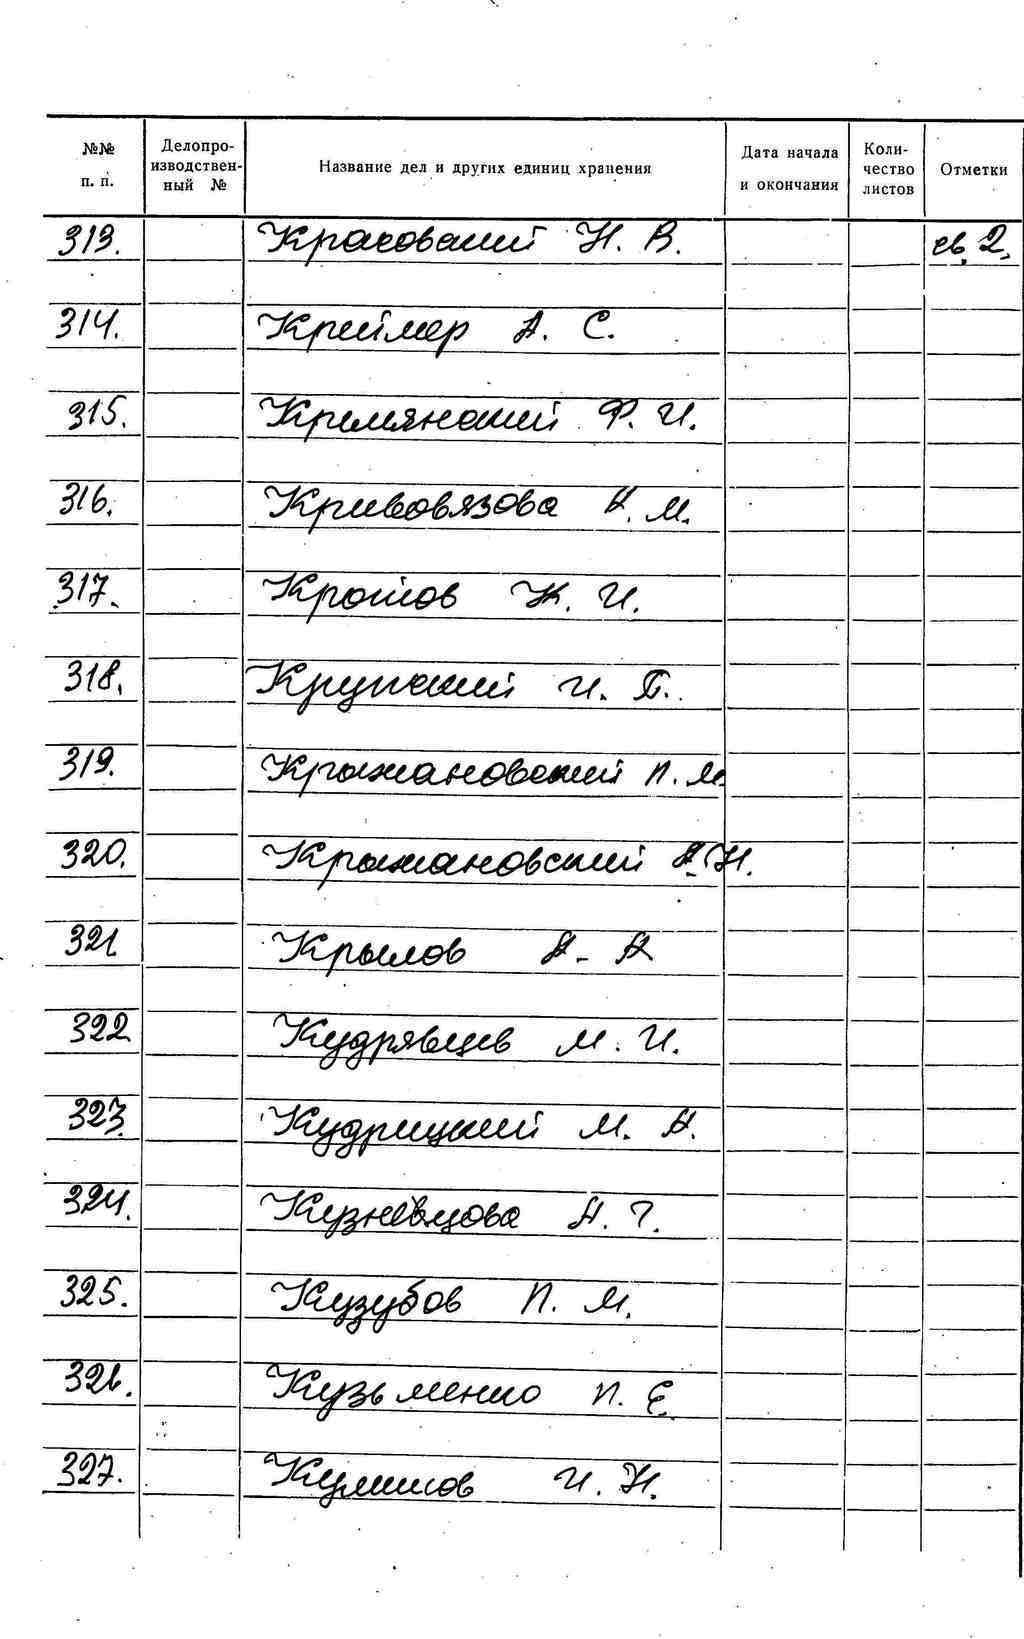 №№ п. п. Делопро-изводствен-ный № Название дел и других единиц хранения Дата начала и окончания Коли-чество листов Отметки
313. Красовский Н. В. св. 2.
314. Креймер А. С.
315. Кремянский Ф. И.
316. Кривовязова А. М.
317. Кротов Ж. И.
318. Крупский И. П.
319. Крыжановский П. М.
320. Крыжановский А. Н.
321 Крылов А. А
322 Кудрявцев М. И.
323. Кудрицкий М. А.
324. Кузнецова А. Г.
325. Кузубов П. М.
326. Кузьменко П. Е.
327. Куликов И. Н.